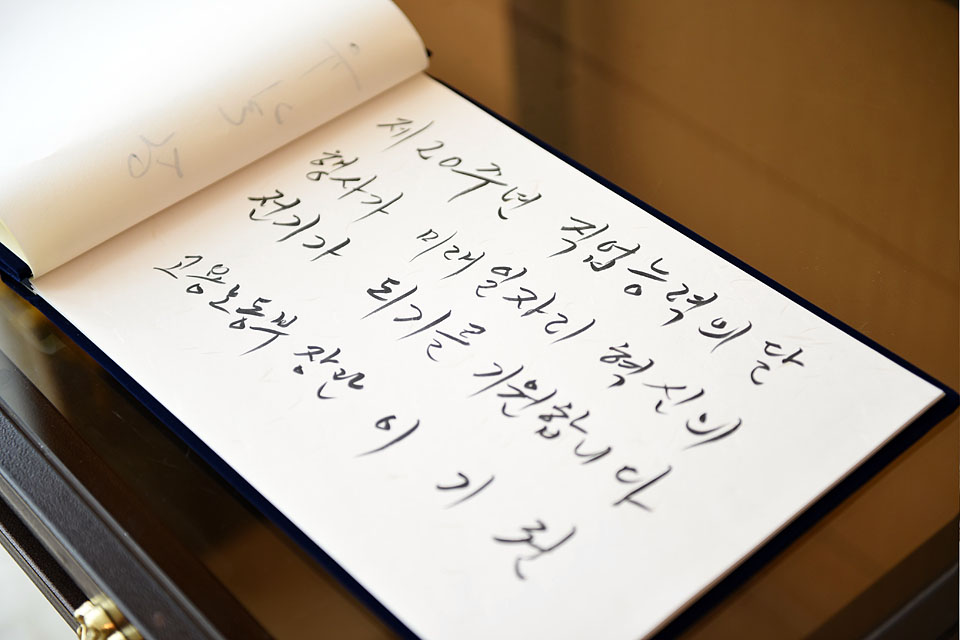 제20주년 직업능력의 달
행사가 미래 일자리 혁신의
전기가 되기를 기원합니다
고용노동부 장관 이 기 권